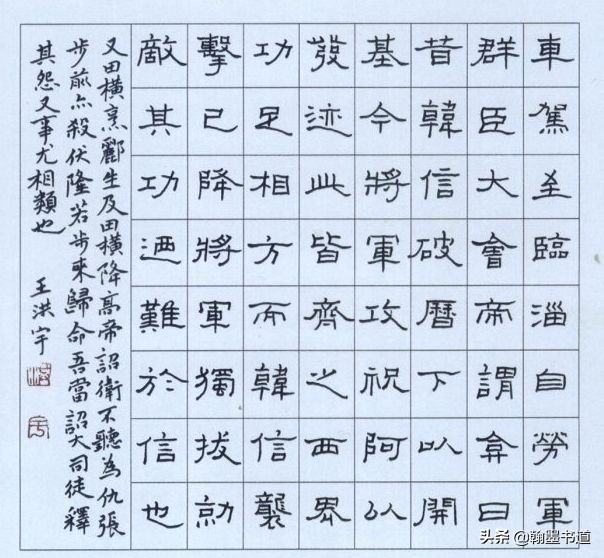 車駕至臨淄自勞軍
群臣大會帝謂弇曰
昔韓信破曆下以開
基今將軍攻祝阿以
發迹此皆齊之西界
功足相方而韓信襲
擊已降將軍獨拔勍
敵其功迺難於信也
又田橫烹酈生及田橫降高帝詔衛不聽為仇張
步前亦殺伏隆若步來歸命吾當詔大司徒釋
其怨又事尤相類也 王洪宇
头条 @翰墨书道